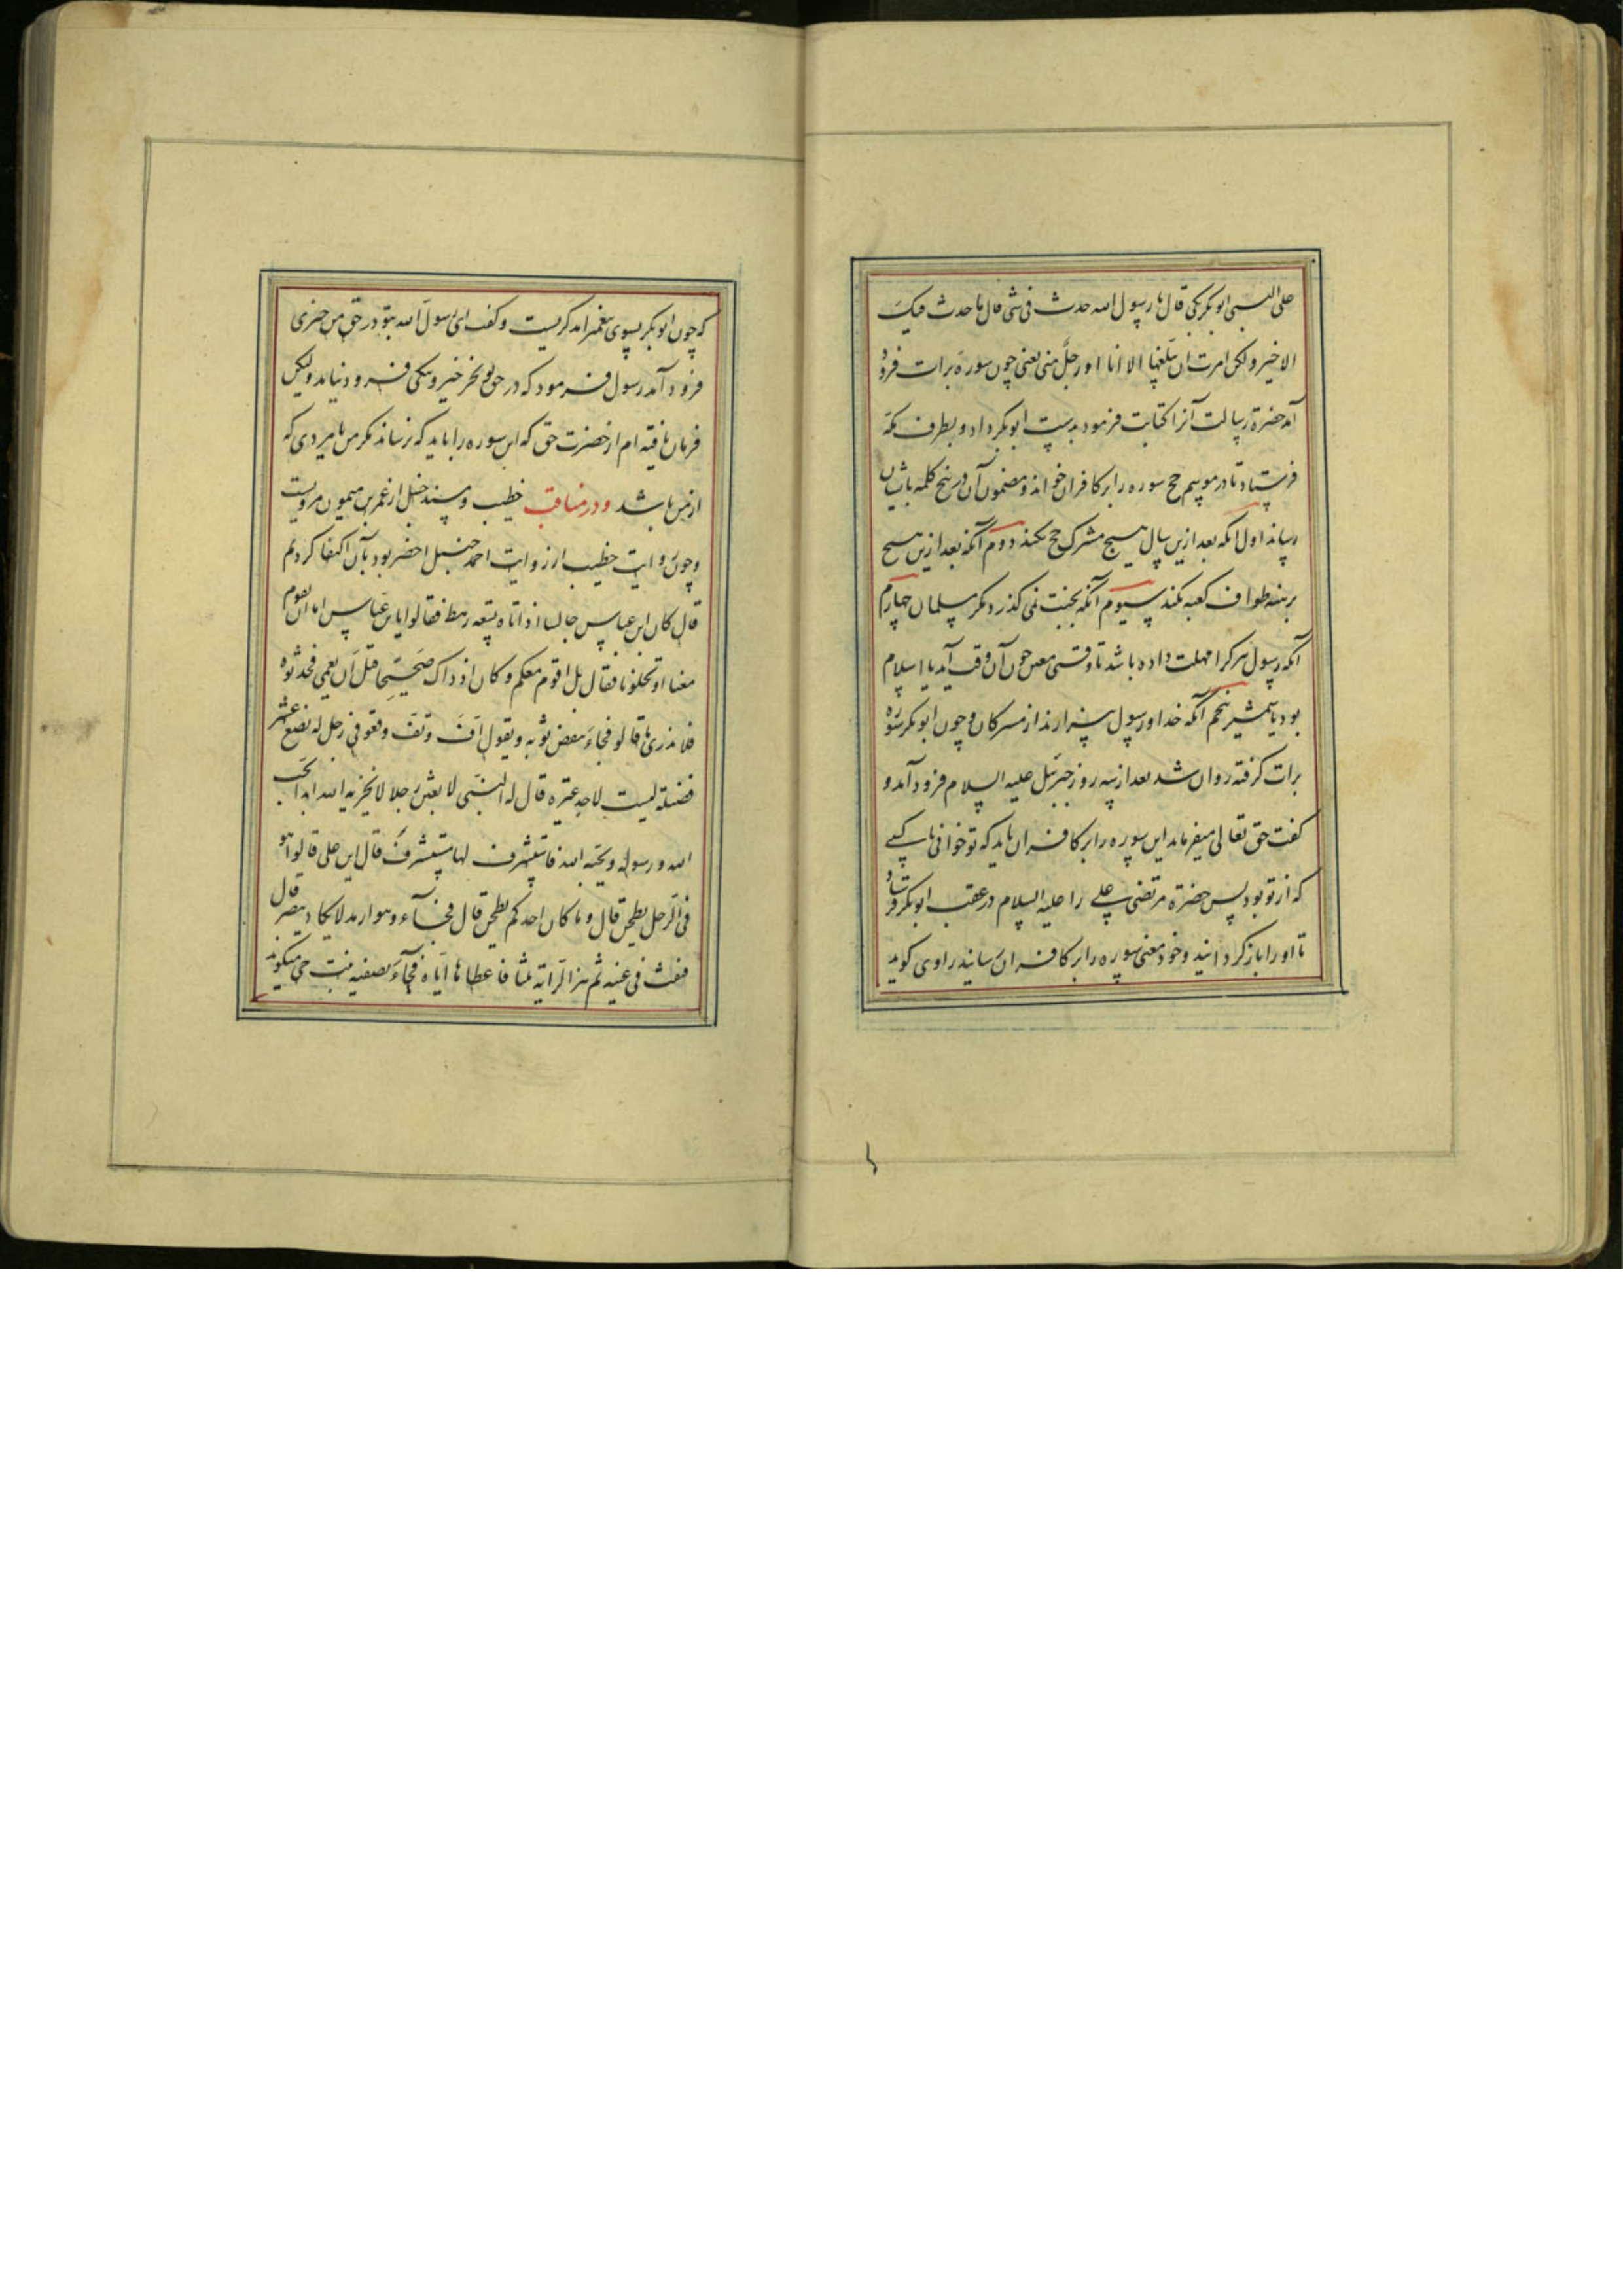 علی النبی ابوبکر بکی قال یا رسول الله حدث فی شی قال ما حدث فیک
الا خیر ولکن امرت ان یبلغها الا انا او رجل منی یعنی چون سوره برات فرود
آمد حضرة رسالت آنرا کتابت فرمود بدست ابوبکر داد و بطرف مکه
فرستاد تا در موسم حج سوره را بر کافران خواند و مضمون آن در پنج کلمه باایشان
رساند اول انکه بعد ازین سال هیچ مشرک حج نکند دوم آنکه بعد ازین هیچ
برهنه طواف کعبه نکند سیوم آنکه بجنت نمی کذرد مکر مسلمان چهارم
آنکه رسول هرکرا مهلت داده باشد تا وقتی معین چون آن وقت آید یا اسلام
بود یا شمشیر پنجم آنکه خدا و رسول بیزارند از مشرکان و چون ابوبکر سوره
برات کرفته روان شد بعد از سه روز جبرئیل علیه السلام فرود آمد و
کفت حق تعالی میفرماید این سوره را بر کافران باید که تو خوانی یا کسی
که از تو بود پس حضرة مرتضی علی را علیه السلام در عقب ابوبکر فرستاد
تا او را باز کردانید و خود معنی سوره را بر کافران رسانید راوی کوید
که چون ابوبکر بسوی پیغمبر امد کریست و کفت ای رسول الله بتو در حق من چیزی
فرود آمد رسول فرمود که در حق تو بجز خیر و نیکی فرود نیامد ولیکن
فرمان یافته ام از حضرت حق که این سوره را باید که نرساند مکر من یا مردی که
از من باشد و در مناقب خطیب و مسند حنبل از عمر بن میمون مرویست
و چون روایت خطیب از روایت احمد حنبل احضر بود بآن اکتفا کردیم
قال کان ابن عباس جالسا اذ اتاه تسعه رهط فقالوا یا بن عباس اما ان تقوم
معنا او تخلونا فقال بل اقوم معکم و کان اذ ذاک صحیحا قبل ان یعمی فحدثوه
فلا ندری ما قالو فجاء ینفض ثوبه و یقول اف و تف وقعو فی رجل له بضع عشر
فضیلة لیست لاحد غیره قال له النبی لابعثن رجلا لا یخزیه الله ابدا یحب
الله و رسوله و یحبه الله فاستشرف لها مستشرف قال این علی قالوا هو
فی الرحل یطحن قال و ما کان احدکم یطحن قال فجاء و هو ارمد لا یکاد یبصر قال
فنفث فی عینیه ثم هز الرایة ثلثا فاعطاها ایاه فجاء بصفیه بنت حی میکوید